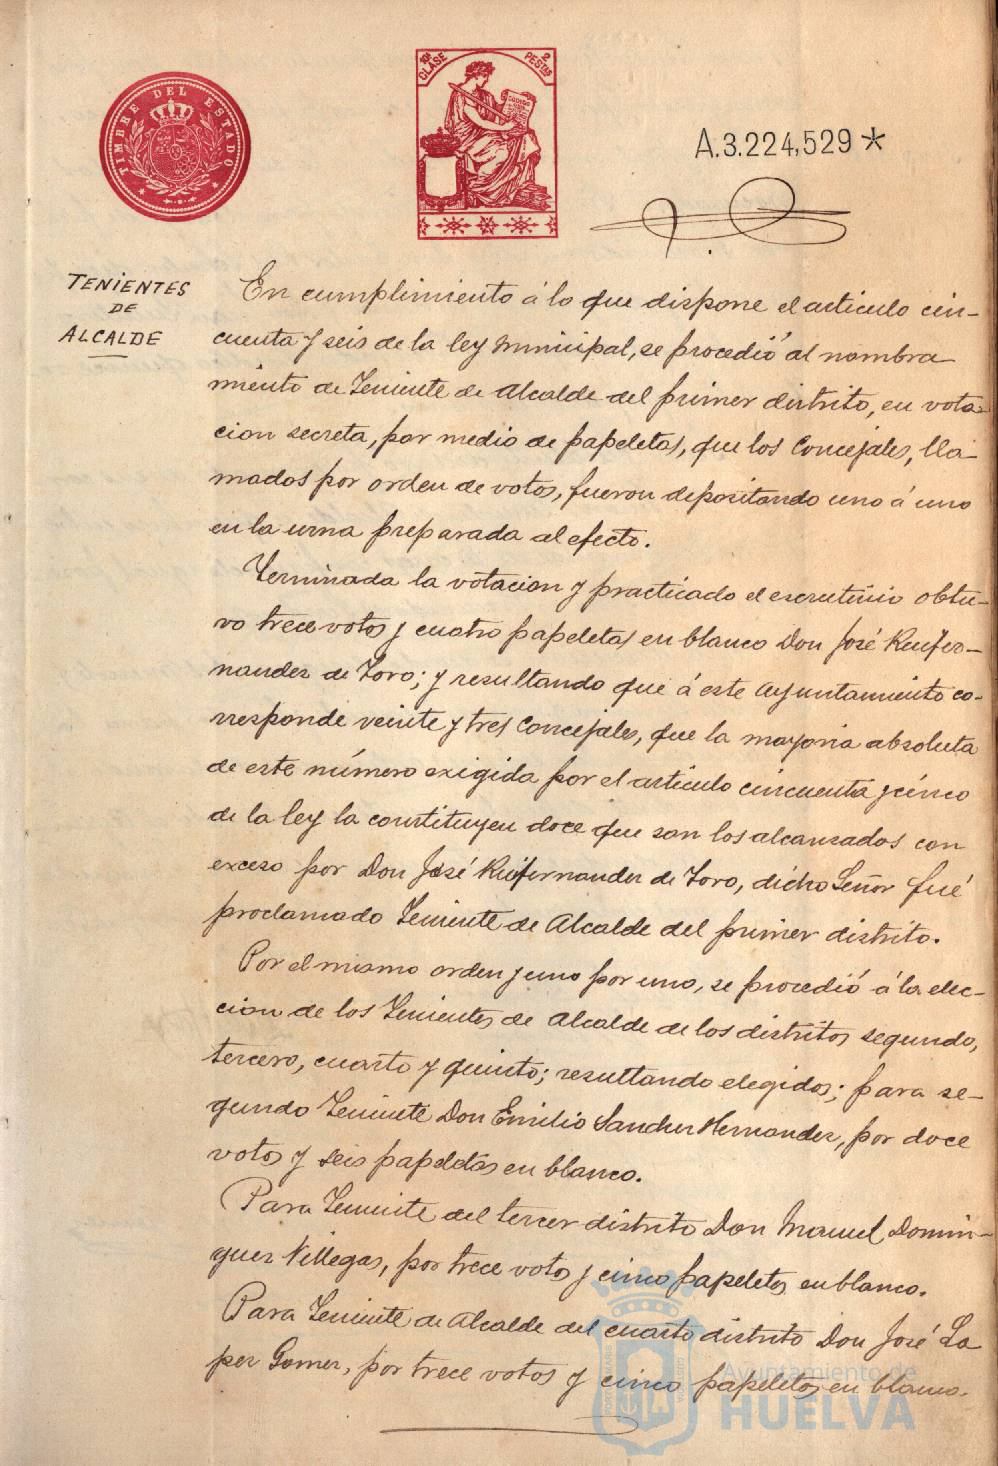 TIMBRE DEL ESTADO
10ª CLASE
2 PESTAS
A.3.224,529*
TENIENTES
DE
ALCALDE
En cumplimiento á lo que dispone el articulo cin-
cuenta y seis de la ley municipal, se procedió al nombra
miento de Teniente de Alcalde del primer distrito, en vota-
cion secreta, por medio de papeletas, que los Concejales, lla-
mados por orden de votos, fueron depositando uno á uno
en la urna preparada al efecto.
Terminada la votacion y practicado el escrutinio obtu-
vo trece votos y cuatro papeletas en blanco Don José Ruifer-
nandez de Toro; y resultando que á este Ayuntamiento co-
rresponde veinte y tres Concejales, que la mayoria absoluta
de este número exigida por el articulo cincuenta y cinco
de la ley la constituyen doce que son los alcanzados con
exceso por Don José Ruifernandez de Toro, dicho Señor fué
proclamado Teniente de Alcalde del primer distrito.
Por el mismo orden y uno por uno, se procedió á la elec-
cion de los Tenientes de Alcalde de los distritos segundo,
tercero, cuarto y quinto; resultando elegidos; para se-
gundo Teniente Don Emilio Sanchez Hernandez, por doce
votos y seis papeletas en blanco.
Para Teniente del tercer distrito Don Manuel Domin-
guez Villegas, por trece votos y cinco papeletas en blanco.
Para Teniente de Alcalde del cuarto distrito Don José Lo
pez Gomez, por trece votos y cinco papeletas en blanco.
Ayuntamiento de
HUELVA